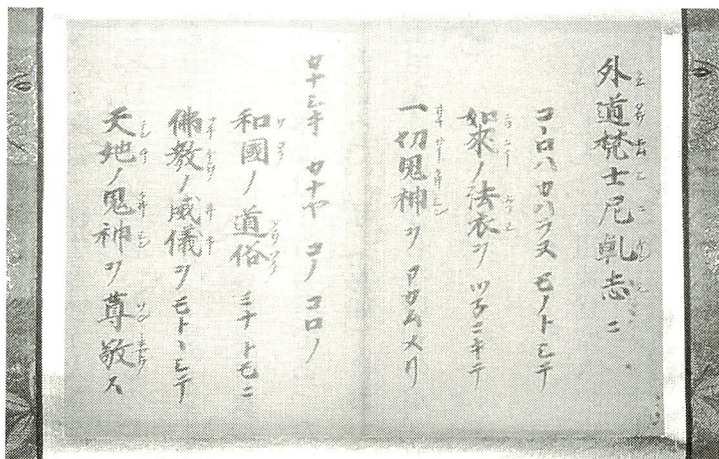 外道梵士尼乾志ニ
コヽロハカハラヌモノトシテ
如來ノ法衣ヲツネニキテ
一切鬼神ヲアガムメリ
カナシキカナヤコノコロノ
和國ノ道俗ミナトモニ
佛教ノ威儀ヲモトヽシテ
天地ノ鬼神ヲ尊敬ス